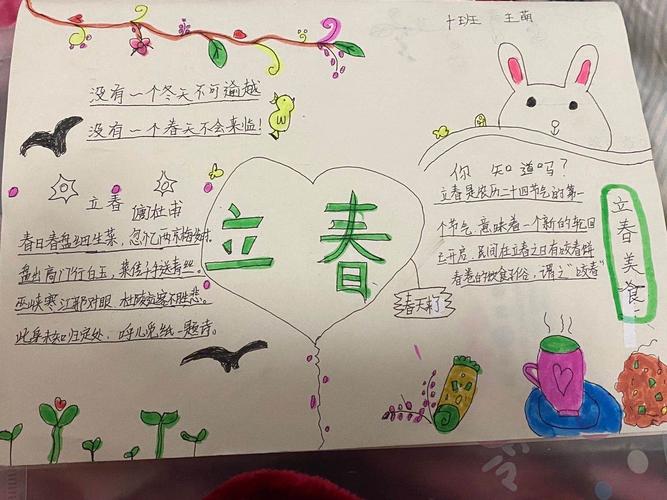 十班 王萌
没有一个冬天不可逾越
没有一个春天不会来临!
立春
杜甫
春日春盘细生菜,忽忆两京梅发时.
盘出高门行白玉,菜传纤手送青丝.
巫峡寒江那对眼,杜陵远客不胜悲.
此身未知归定处,呼儿觅纸一题诗。
立春
春天来了
你知道吗?
立春是农历二十四节气的第一
个节气,意味着一个新的轮回
已开启,民间在立春之日有咬春饼
春卷的饮食习俗,谓之"咬春"
立春美食